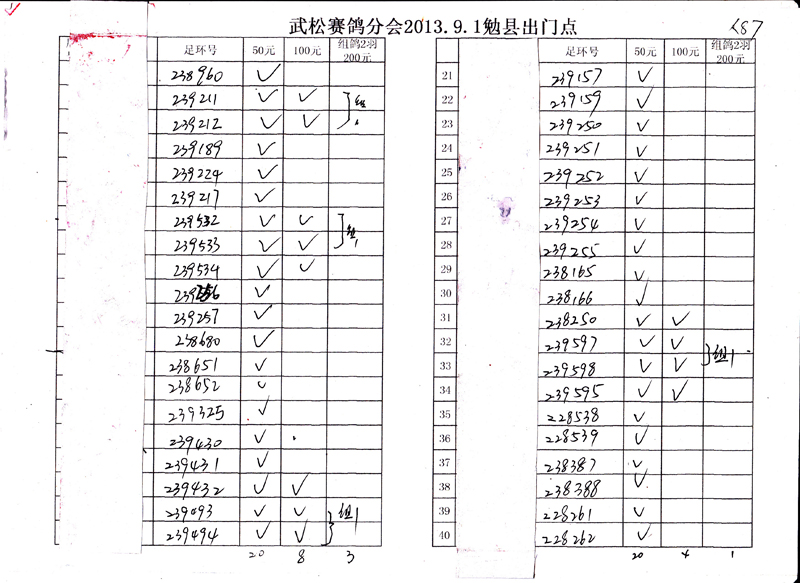 武松赛鸽分会2013.9.1勉县出门点
足环号 50元 100元 组鸽2羽200元
238960 ✓
239211 ✓ ✓ 组
239212 ✓ ✓
239189 ✓
239224 ✓
239217 ✓
239532 ✓ ✓ 组1
239533 ✓ ✓
239534 ✓ ✓
239256 ✓
239257 ✓
238680 ✓
238651 ✓
238652 ✓
239325 ✓
239430 ✓
239431 ✓
239432 ✓ ✓
239493 ✓ ✓ 组1
239494 ✓ ✓
20 8 3
足环号 50元 100元 组鸽2羽200元
21 239157 ✓
22 239159 ✓
23 239250 ✓
24 239251 ✓
25 239252 ✓
26 239253 ✓
27 239254 ✓
28 239255 ✓
29 238165 ✓
30 238166 ✓
31 238250 ✓ ✓
32 239597 ✓ ✓ 组1
33 239598 ✓ ✓
34 239595 ✓ ✓
35 228538 ✓
36 228539 ✓
37 238387 ✓
38 238388 ✓
39 228261 ✓
40 228262 ✓
20 4 1